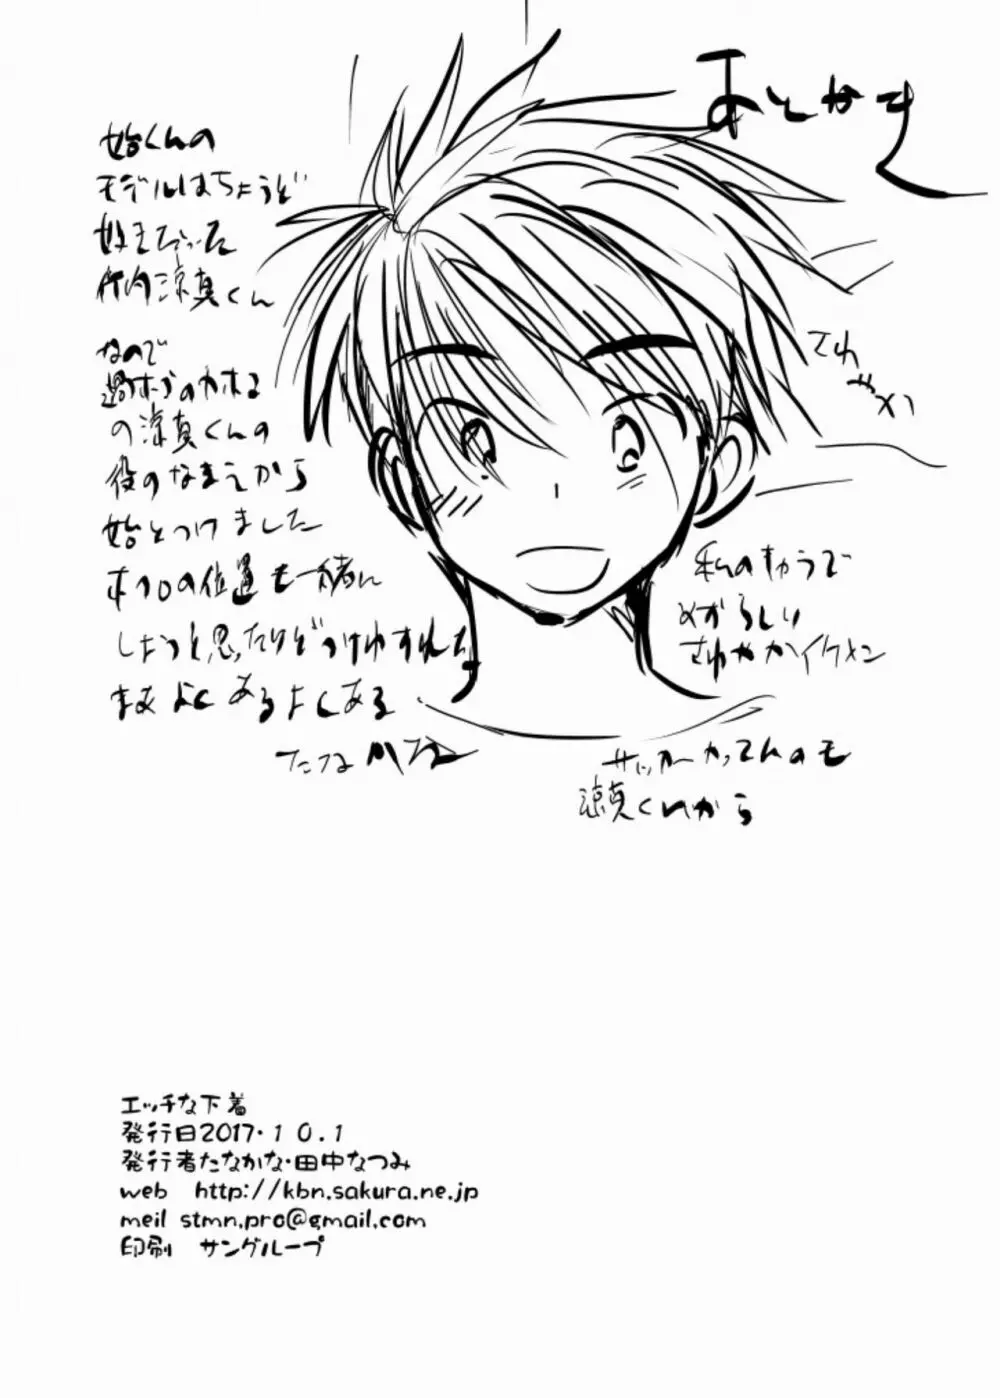 あとがき
始くんの
モデルはちょうど
好きだった
竹内涼真くん
なので
過ホゴのカホコ
の涼真くんの
役のなまえから
始とつけました
ホクロの位置も一緒に
しようと思ったけどつけわすれた
まあよくあるよくある
たなかな
さわ
やか
私のきゃらで
めずらしい
さわやかイケメン
サッカーやってんのも
涼真くんから
エッチな下着
発行日2017.10.1
発行者たなかな・田中なつみ
web http://kbn.sakura.ne.jp
meil stmn.pro@gmail.com
印刷 サングループ